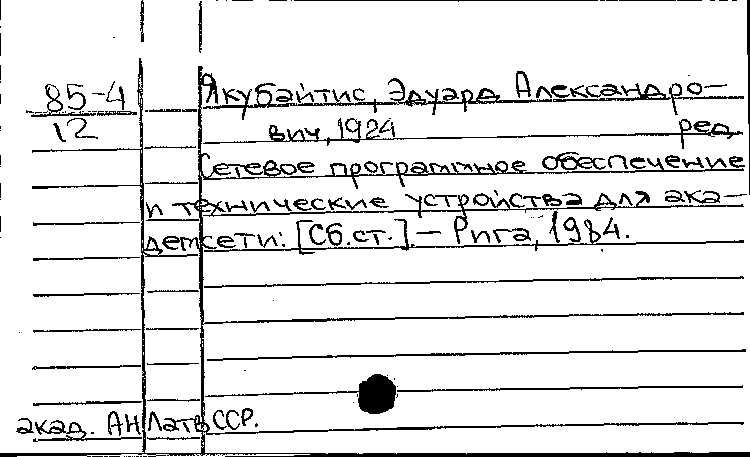 85-4
12
Якубайтис, Эдуард Александро-
вич, 1924 ред.
Сетевое программное обеспечение
и технические устройства для ака-
демсети: [Сб.ст.]. – Рига, 1984.
акад. АН Латв ССР.